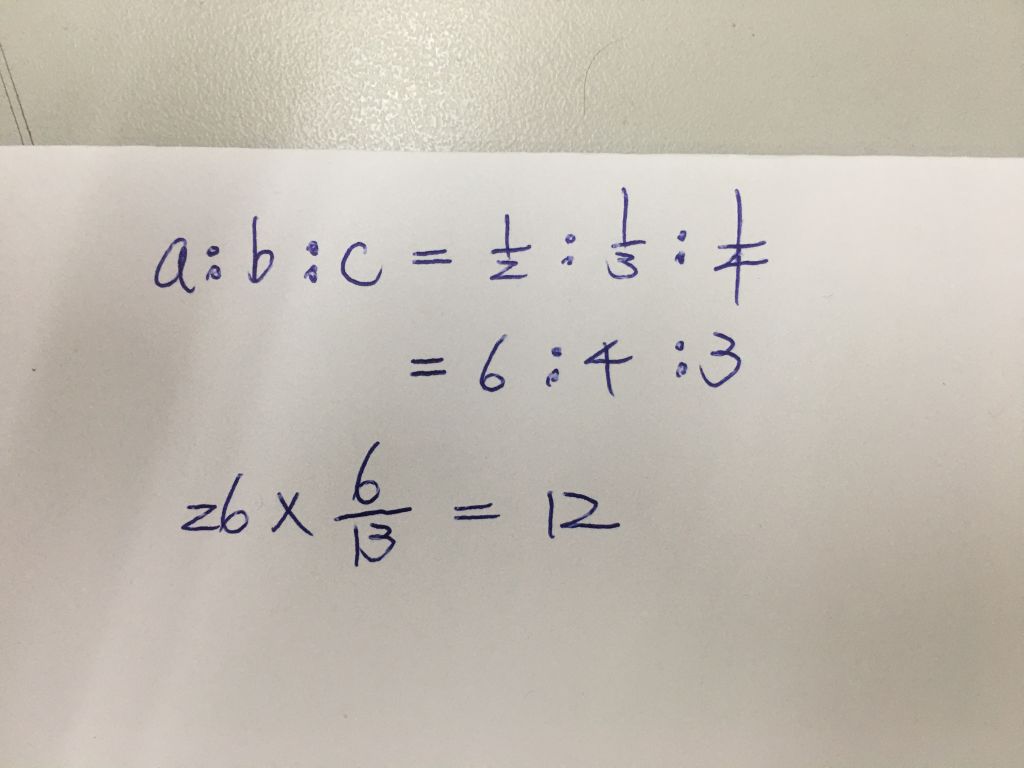 a:b:c = 1/2 : 1/3 : 1/4
= 6 : 4 : 3
26 × 6/13 = 12